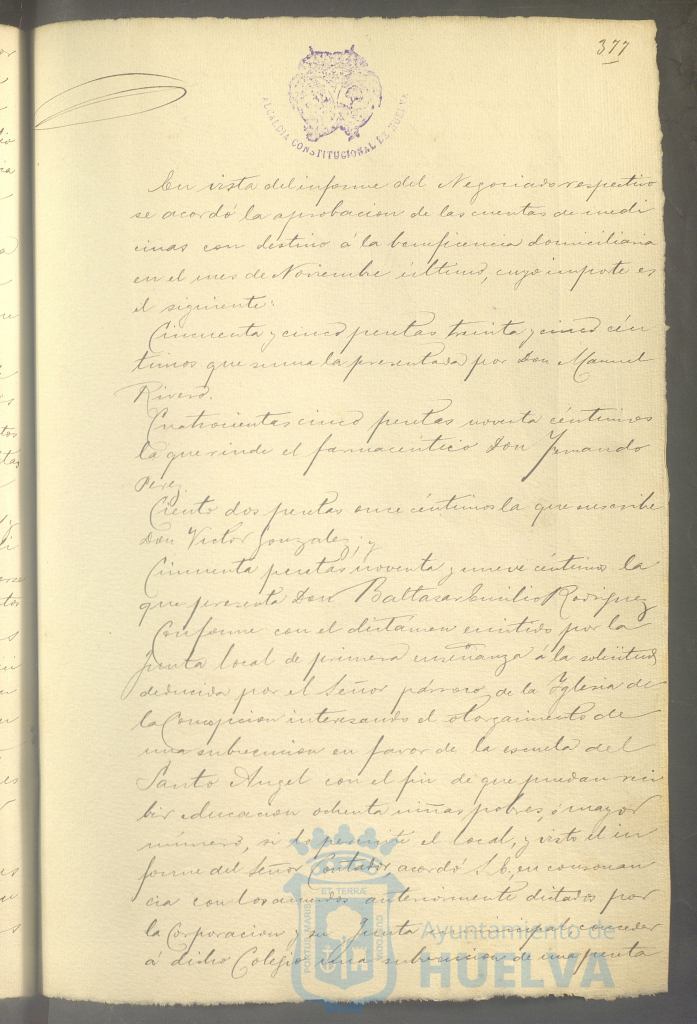 377
ALCALDIA CONSTITUCIONAL DE HUELVA
En vista del informe del Negociado respectivo
se acordó la aprobacion de las cuentas de medi
cinas con destino á la beneficencia domiciliaria
en el mes de Noviembre último, cuyo importe es
el siguiente:
Cincuenta y cinco pesetas treinta y cinco cén
timos que suma la presentada por Don Manuel
Rivero.
Cuatrocientas cinco pesetas noventa céntimos
la que rinde el farmacéutico Don Fernando
Perez
Ciento dos pesetas once céntimos la que suscribe
Don Victor Gonzalez; y
Cincuenta pesetas noventa y nueve céntimos la
que presenta Don Baltasar Emilio Rodriguez
Conforme con el dictamen emitido por la
Junta local de primera enseñanza á la solicitud
deducida por el Señor párroco de la Iglesia de
la Concepcion interesando el otorgamiento de
una subvencion en favor de la escuela del
Santo Angel con el fin de que puedan reci
bir educacion ochenta niñas pobres, ó mayor
número, si lo permite el local, y visto el in
forme del Señor Contador, acordó S. E., en consonan
cia con los acuerdos anteriormente dictados por
la Corporacion y su Junta municipal, conceder
á dicho Colegio una subvencion de una peseta
PORTUS MARIS ET TERRÆ CUSTODIA
Ayuntamiento de
HUELVA